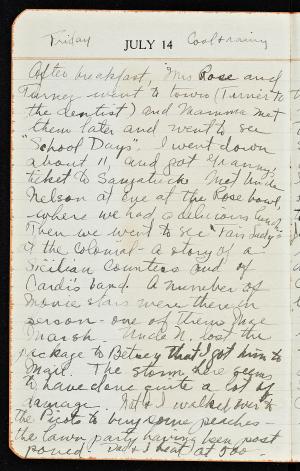 Friday JULY 14 Cool & rainy
After breakfast, Mrs Rose and
Turner went to town (Turner to
the dentist) and Mamma met
them later and went to see
"School Days". I went down
about 11, and got Granny's
ticket to Saugatuck. Met Uncle
Nelson at one at the Rose
where we had a delicious lunch.
Then we went to see "Fair Lady"
at the Colonial - a story of a
Sicilian Countess and of
band. A number of
Movie stars were there in
person - one of them Mae
Marsh. Uncle N. lost the
package to Betsey that I got him to
mail. The storm here seems
to have done quite a lot of
damage. & I walked over to
the Picots to buy some peaches -
the lawn party having been post
poned. Dad & I